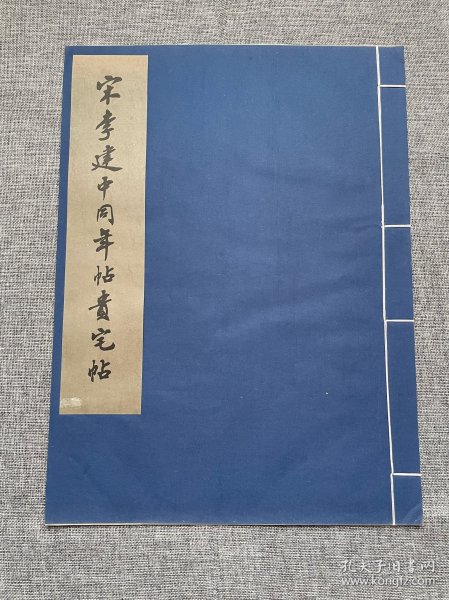 宋李建中同年帖贵宅帖
孔夫子旧书网
www.kongfz.com